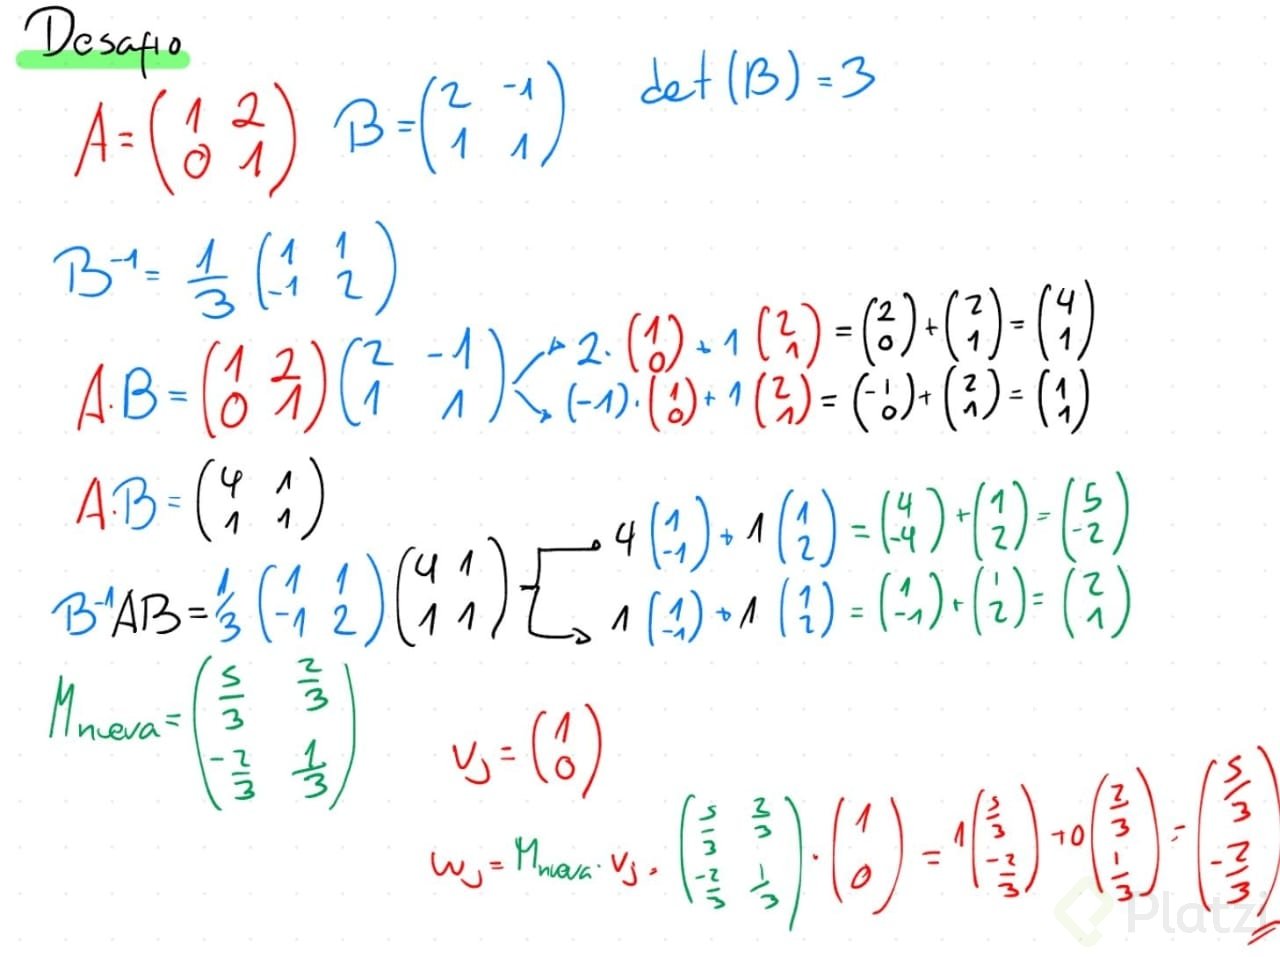 Desafio
A = (1 2 0 1) B = (2 -1 1 1) det(B) = 3
B⁻¹ = 1/3 (1 1 -1 2)
A.B = (1 2 0 1) (2 -1 1 1) 2. (1 0) + 1 (2 1) = (2 0) + (2 1) = (4 1)
(-1). (1 0) + 1 (2 1) = (-1 0) + (2 1) = (1 1)
A.B = (4 1 1 1)
B⁻¹AB = 1/3 (1 1 -1 2) (4 1 1 1) 4 (1 -1) + 1 (1 2) = (4 -4) + (1 2) = (5 -2)
1 (1 -1) + 1 (1 2) = (1 -1) + (1 2) = (2 1)
Mnueva = (5/3 2/3 -2/3 1/3)
vj = (1 0)
wj = Mnueva . vj = (5/3 2/3 -2/3 1/3) . (1 0) = 1 (5/3 -2/3) + 0 (2/3 1/3) = (5/3 -2/3)
Platzi